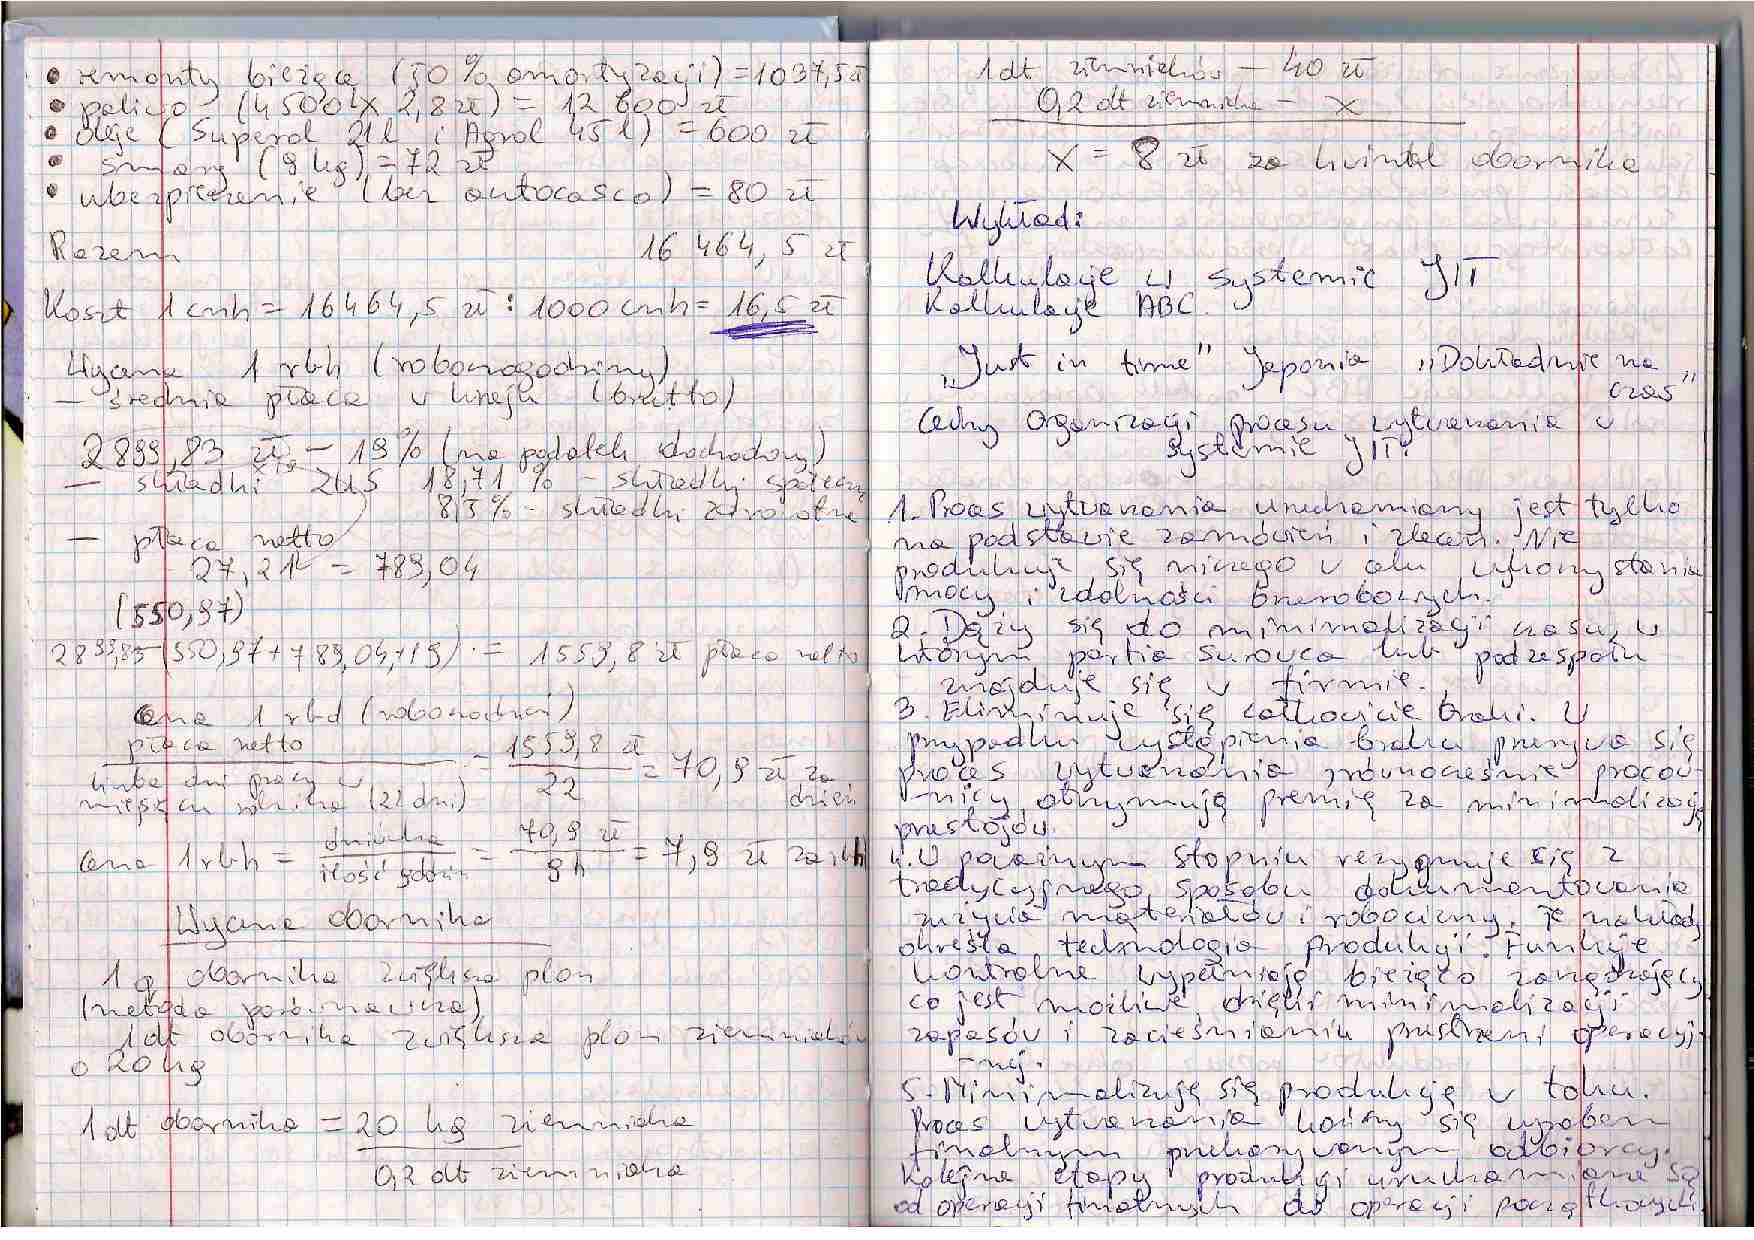 • remonty bieżące (50% amortyzacji) = 1037,5 zł
• paliwo (4500l x 2,8 zł) = 12 600 zł
• oleje (Superol 21l i Agrol 45 l) = 600 zł
• smary (9 kg) = 72 zł
• ubezpieczenie (bez autocasco) = 80 zł
Razem 16 464,5 zł
Koszt 1 cnh = 16464,5 zł : 1000 cnh = 16,5 zł
Wycena 1 rbh (roboczogodziny)
– średnia płaca w kraju (brutto)
2899,83 zł – 19% (na podatek dochodowy)
– składki ZUS 18,71% – składki społeczn
8,5% – składki zdrowotne
– płaca netto
27,21 = 789,04
(550,97)
2899,83-(550,97+789,04+19) = 1559,8 zł płaca netto
Cena 1 rbd (robonodnia)
płaca netto = 1559,8 zł = 70,9 zł za
liczba dni pracy w 22 dzień
miesiącu rolnika (22 dni)
Cena 1 rbh = dniówka = 70,9 zł = 7,9 zł za rbh
ilość godzin 9h
Wycena obornika
1 q obornika zwiększa plon
(metoda porównawcza)
1dt obornika zwiększa plon ziemniaków
o 20 kg
1dt obornika = 20 kg ziemniaka
0,2 dt ziemniaka
1dt ziemniaków – 40 zł
0,2 dt ziemniaka – x
x = 8 zł za kwintal obornika
Wykład:
Kalkulacje w systemie JIT
Kalkulacje ABC.
„Just in time" Japonia „Dokładnie na
czas"
Cechy organizacji procesu wytwarzania w
systemie JIT:
1. Proces wytwarzania uruchamiany jest tylko
na podstawie zamówień i zleceń. Nie
produkuje się niczego w celu wykorzystania
mocy i zdolności przerobowych.
2. Dąży się do minimalizacji czasu, w
którym partia surowca lub podzespołu
znajduje się w firmie.
3. Eliminuje się całkowicie braki. W
przypadku wystąpienia braku przerywa się
proces wytwarzania, równocześnie pracow-
-nicy otrzymują premię za minimalizację
przestojów.
4. W poważnym stopniu rezygnuje się z
tradycyjnego sposobu dokumentowania
zużycia materiałów i robocizny. Te nakłady
określa technologia produkcji. Funkcje
kontrolne wypełniają bieżąco zarządzający
co jest możliwe dzięki minimalizacji
zapasów i zacieśnianiu przestrzeni operacyj-
-nej.
5. Minimalizuję się produkcję w toku.
Proces wytwarzania kończy się wyrobem
finalnym przekazywanym odbiorcy.
Kolejne etapy produkcji uruchamiane są
od operacji finalnych do operacji początkowych.